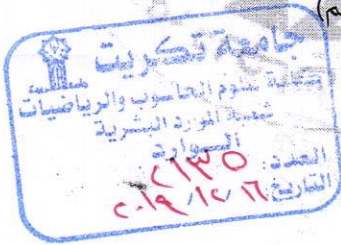 (م
جامعة تكريت
كلية علوم الحاسوب والرياضيات
شعبة الموارد البشرية
الـــوارد
العدد: ٢١٣٥
التاريخ: ٢٠١٩/١٢/١٦